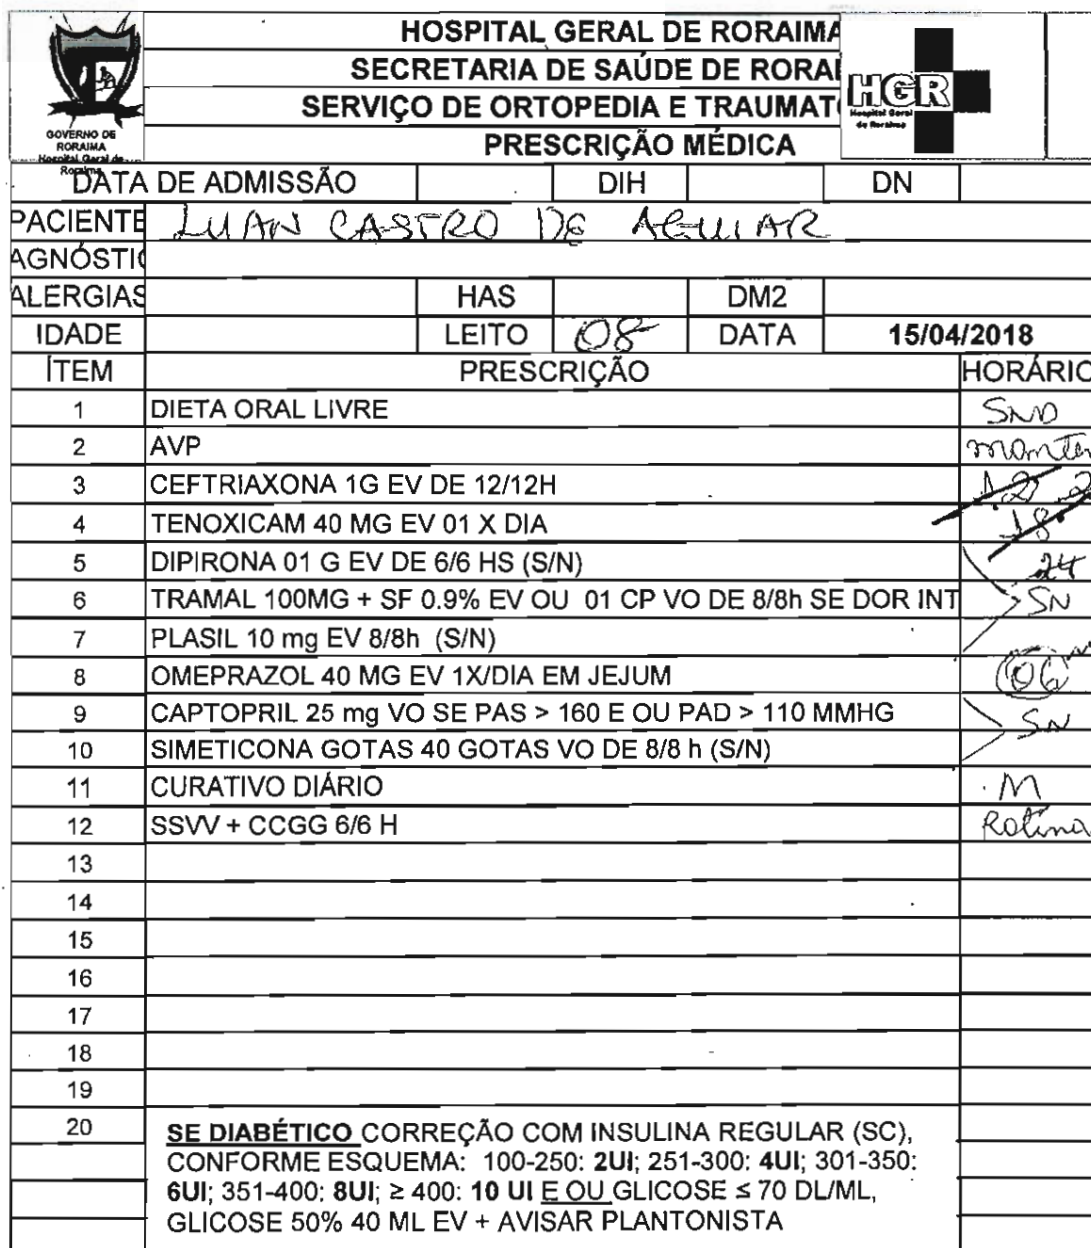 HOSPITAL GERAL DE RORAIMA
SECRETARIA DE SAÚDE DE RORAI
SERVIÇO DE ORTOPEDIA E TRAUMATO
PRESCRIÇÃO MÉDICA
GOVERNO DE
RORAIMA
Hospital Geral de
Roraima
HGR
Hospital Geral
de Roraima
DATA DE ADMISSÃO DIH DN
PACIENTE LUAN CASTRO DE AGUIAR
AGNÓSTIC
ALERGIAS HAS DM2
IDADE LEITO 08 DATA 15/04/2018
ÍTEM PRESCRIÇÃO HORÁRIO
1 DIETA ORAL LIVRE SND
2 AVP manter
3 CEFTRIAXONA 1G EV DE 12/12H 12
4 TENOXICAM 40 MG EV 01 X DIA 18
5 DIPIRONA 01 G EV DE 6/6 HS (S/N) 24
6 TRAMAL 100MG + SF 0.9% EV OU 01 CP VO DE 8/8h SE DOR INT SN
7 PLASIL 10 mg EV 8/8h (S/N)
8 OMEPRAZOL 40 MG EV 1X/DIA EM JEJUM 06
9 CAPTOPRIL 25 mg VO SE PAS > 160 E OU PAD > 110 MMHG SN
10 SIMETICONA GOTAS 40 GOTAS VO DE 8/8 h (S/N)
11 CURATIVO DIÁRIO M
12 SSVV + CCGG 6/6 H Rotina
13
14
15
16
17
18
19
20 SE DIABÉTICO CORREÇÃO COM INSULINA REGULAR (SC),
CONFORME ESQUEMA: 100-250: 2UI; 251-300: 4UI; 301-350:
6UI; 351-400: 8UI; ≥ 400: 10 UI E OU GLICOSE ≤ 70 DL/ML,
GLICOSE 50% 40 ML EV + AVISAR PLANTONISTA